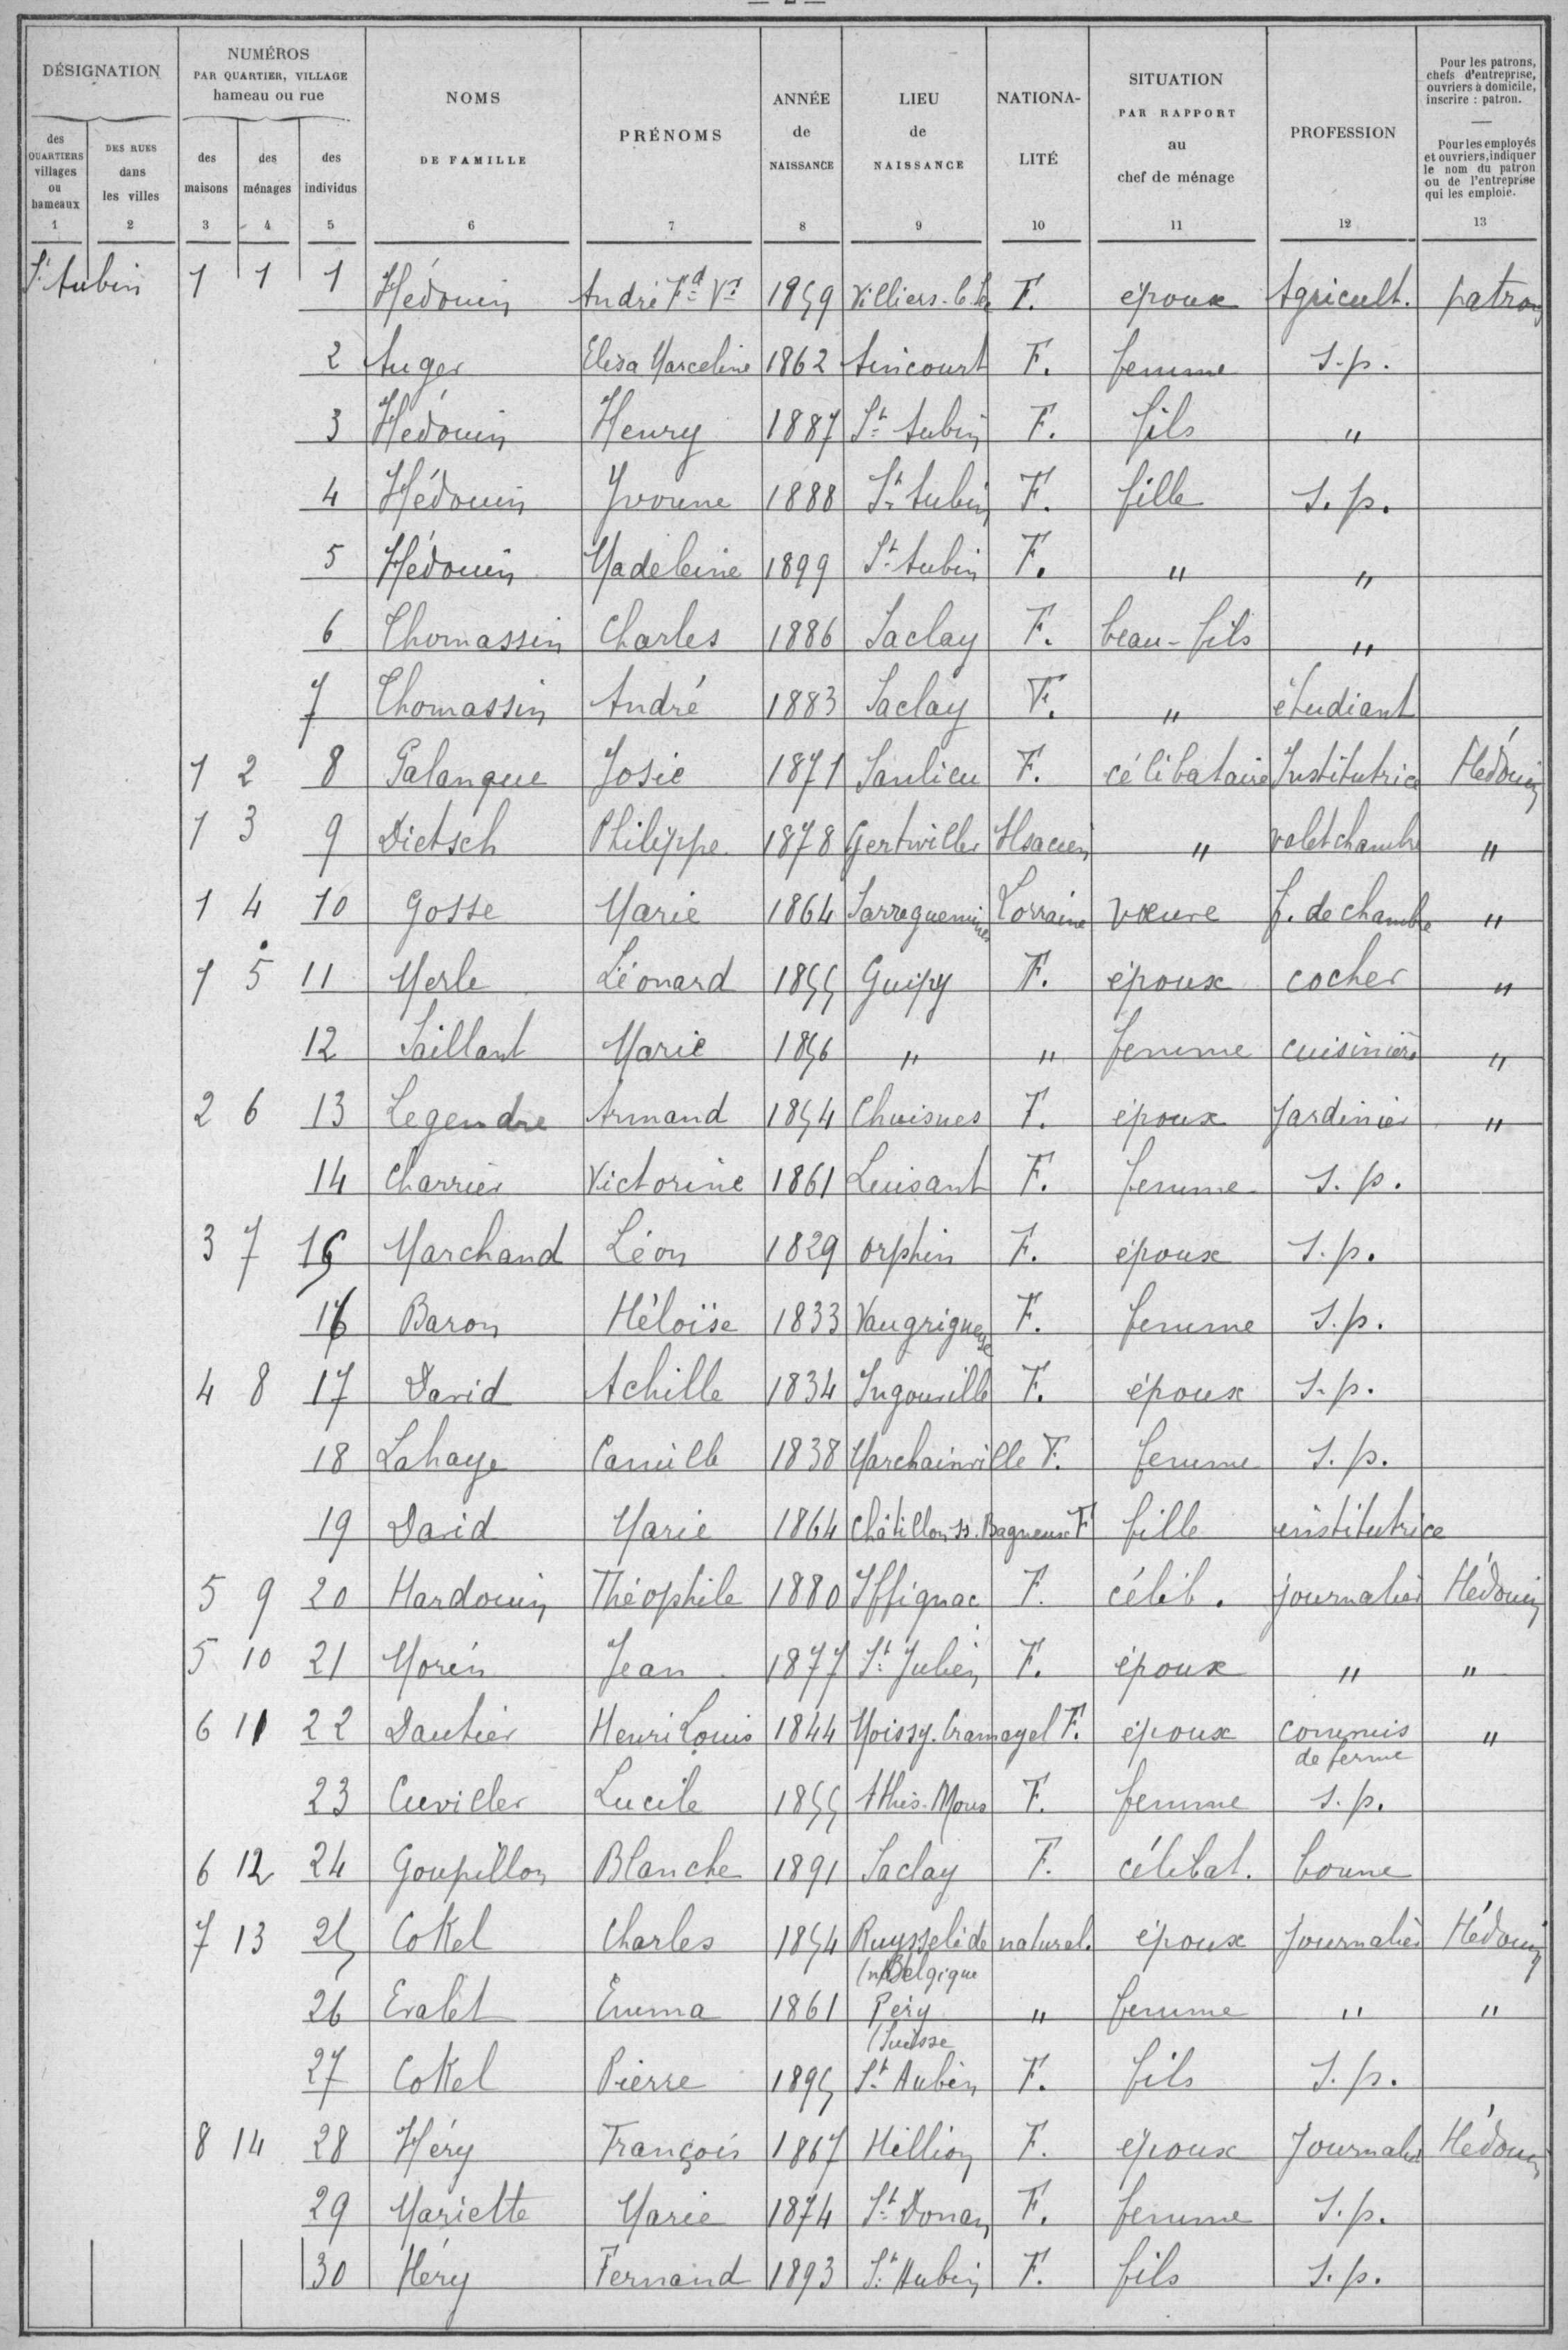 — 2 —
DÉSIGNATION
NUMÉROS
PAR QUARTIER, VILLAGE
hameau ou rue
NOMS
DE FAMILLE
PRÉNOMS
ANNÉE
de
NAISSANCE
LIEU
de
NAISSANCE
NATIONA-
LITÉ
SITUATION
PAR RAPPORT
au
chef de ménage
PROFESSION
Pour les patrons,
chefs d'entreprise,
ouvriers à domicile,
inscrire : patron.
—
Pour les employés
et ouvriers, indiquer
le nom du patron
ou de l'entreprise
qui les emploie.
des
QUARTIERS
villages
ou
hameaux
DES RUES
dans
les villes
des
maisons
des
ménages
des
individus
1 2 3 4 5 6 7 8 9 10 11 12 13
St Aubin 1 1 1 Hédouin André Fd Vr 1859 Villiers-le- F. époux Agricult. patron
2 Auger Elisa Marceline 1862 Aincourt F. femme s.p.
3 Hédouin Henry 1887 St Aubin F. fils "
4 Hédouin Yvonne 1888 St Aubin F. fille s.p.
5 Hédouin Madeleine 1899 St Aubin F. " "
6 Thomassin Charles 1886 Saclay F. beau-fils "
7 Thomassin André 1883 Saclay F. " étudiant
1 2 8 Palanque Josie 1871 Saulieu F. célibataire Institutrice Hédouin
1 3 9 Dietsch Philippe 1878 Gertwiller Alsacien " valet chambre "
1 4 10 Gosse Marie 1864 Sarreguemines Lorraine veuve f. de chambre "
1 5 11 Merle Léonard 1855 Guipy F. époux cocher "
12 Saillant Marie 1856 " " femme cuisinière "
2 6 13 Legendre Armand 1854 Chuisnes F. époux Jardinier "
14 Charrier Victorine 1861 Luisant F. femme s.p.
3 7 15 Marchand Léon 1829 Orphin F. époux s.p.
16 Baron Héloïse 1833 Vaugrigneuse F. femme s.p.
4 8 17 David Achille 1834 Ingouville F. époux s.p.
18 Lahaye Camille 1838 Marchainville F. femme s.p.
19 David Marie 1864 Châtillon ss. Bagneux F fille institutrice
5 9 20 Hardouin Théophile 1880 Yffignac F. célib. journalier Hédouin
5 10 21 Morin Jean 1877 St Julien F. époux " "
6 11 22 Dautier Henri Louis 1844 Moissy. Cramayel F. époux commis "
de ferme
23 Cuviller Lucile 1855 Athis-Mons F. femme s.p.
6 12 24 Goupillon Blanche 1891 Saclay F. célibat. bonne
7 13 25 Cokel Charles 1854 Ruysselède natural. époux Journalier Hédouin
Belgique
26 Evalet Emma 1861 Péry " femme " "
(Suisse
27 Cokel Pierre 1895 St Aubin F. fils s.p.
8 14 28 Héry François 1867 Hillion F. époux Journalier Hédouin
29 Mariette Marie 1874 St Donan F. femme s.p.
30 Héry Fernand 1893 St Aubin F. fils s.p.